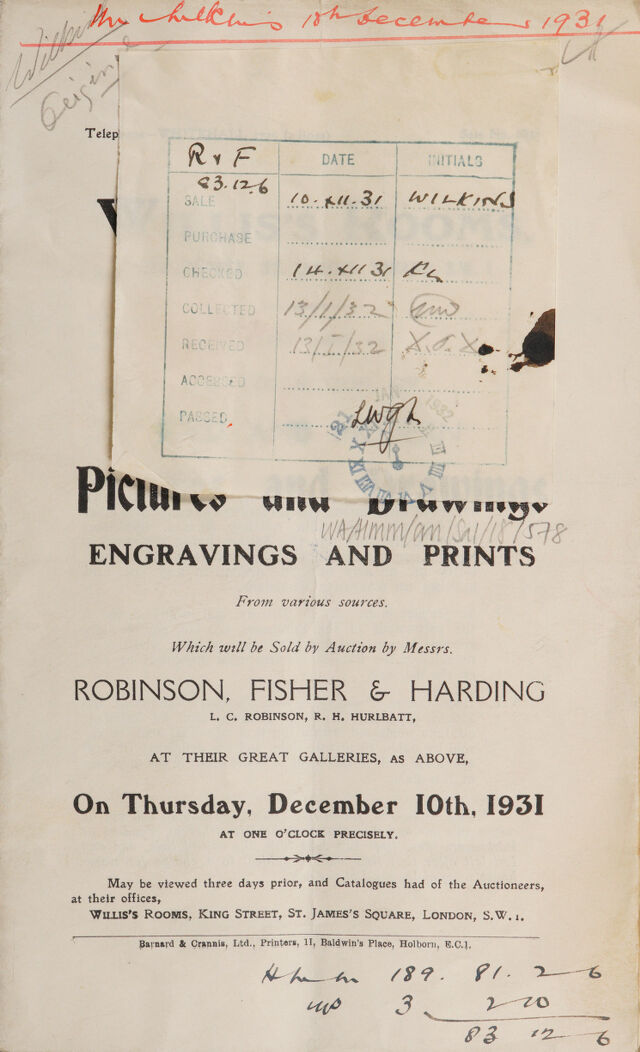 10th December 1931
Wilkins
Telep
R & F
DATE
INITIALS
83.12.6
SALE
10.XII.31
WILKINS
PURCHASE
CHECKED
14.XII 31
COLLECTED
13/1/32
RECEIVED
13/I/32
ACCESSED
PASSED
1932
Pictures and Drawings
WA/HMM/
/Sal/18/578
ENGRAVINGS AND PRINTS
From various sources.
Which will be Sold by Auction by Messrs.
ROBINSON, FISHER & HARDING
L. C. ROBINSON, R. H. HURLBATT,
AT THEIR GREAT GALLERIES, AS ABOVE,
On Thursday, December 10th, 1931
AT ONE O'CLOCK PRECISELY.
May be viewed three days prior, and Catalogues had of the Auctioneers,
at their offices,
WILLIS'S ROOMS, KING STREET, ST. JAMES'S SQUARE, LONDON, S.W. 1.
Barnard & Crannis, Ltd., Printers, 11, Baldwin's Place, Holborn, E.C.1.
189. 81. 2 - 6
3. 2 10
83 12 6